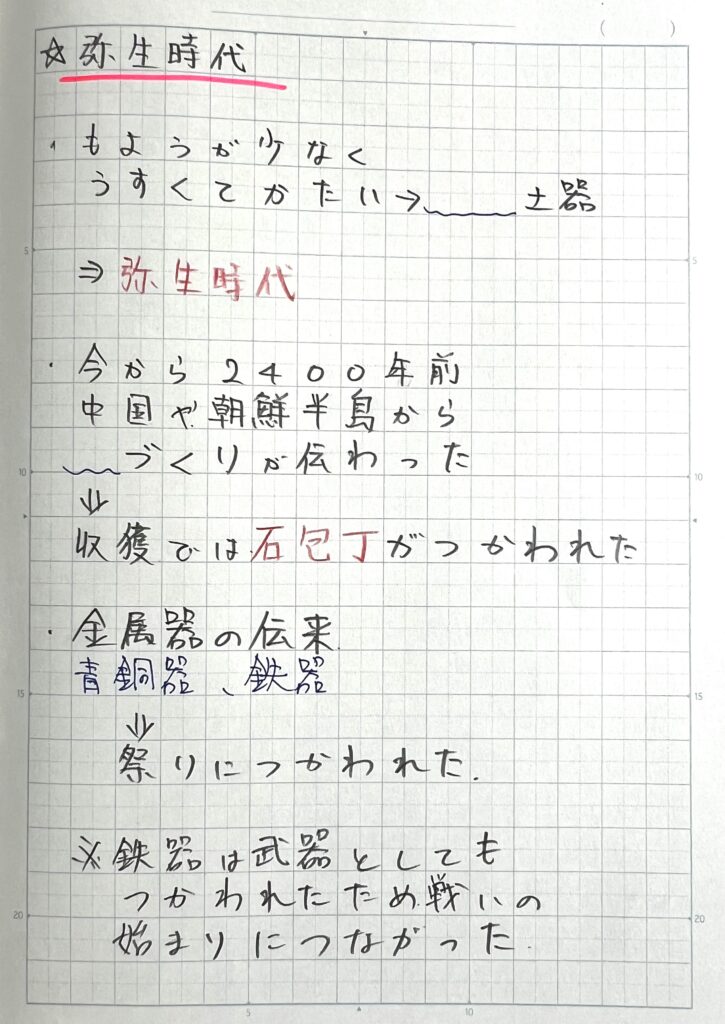 ☆弥生時代
・もようが少なく
うすくてかたい→____土器
⇒弥生時代
・今から2400年前
中国や朝鮮半島から
__づくりが伝わった
⇓
収獲では石包丁がつかわれた
・金属器の伝来
青銅器、鉄器
⇓
祭りにつかわれた.
※鉄器は武器としても
つかわれたため戦いの
始まりにつながった.